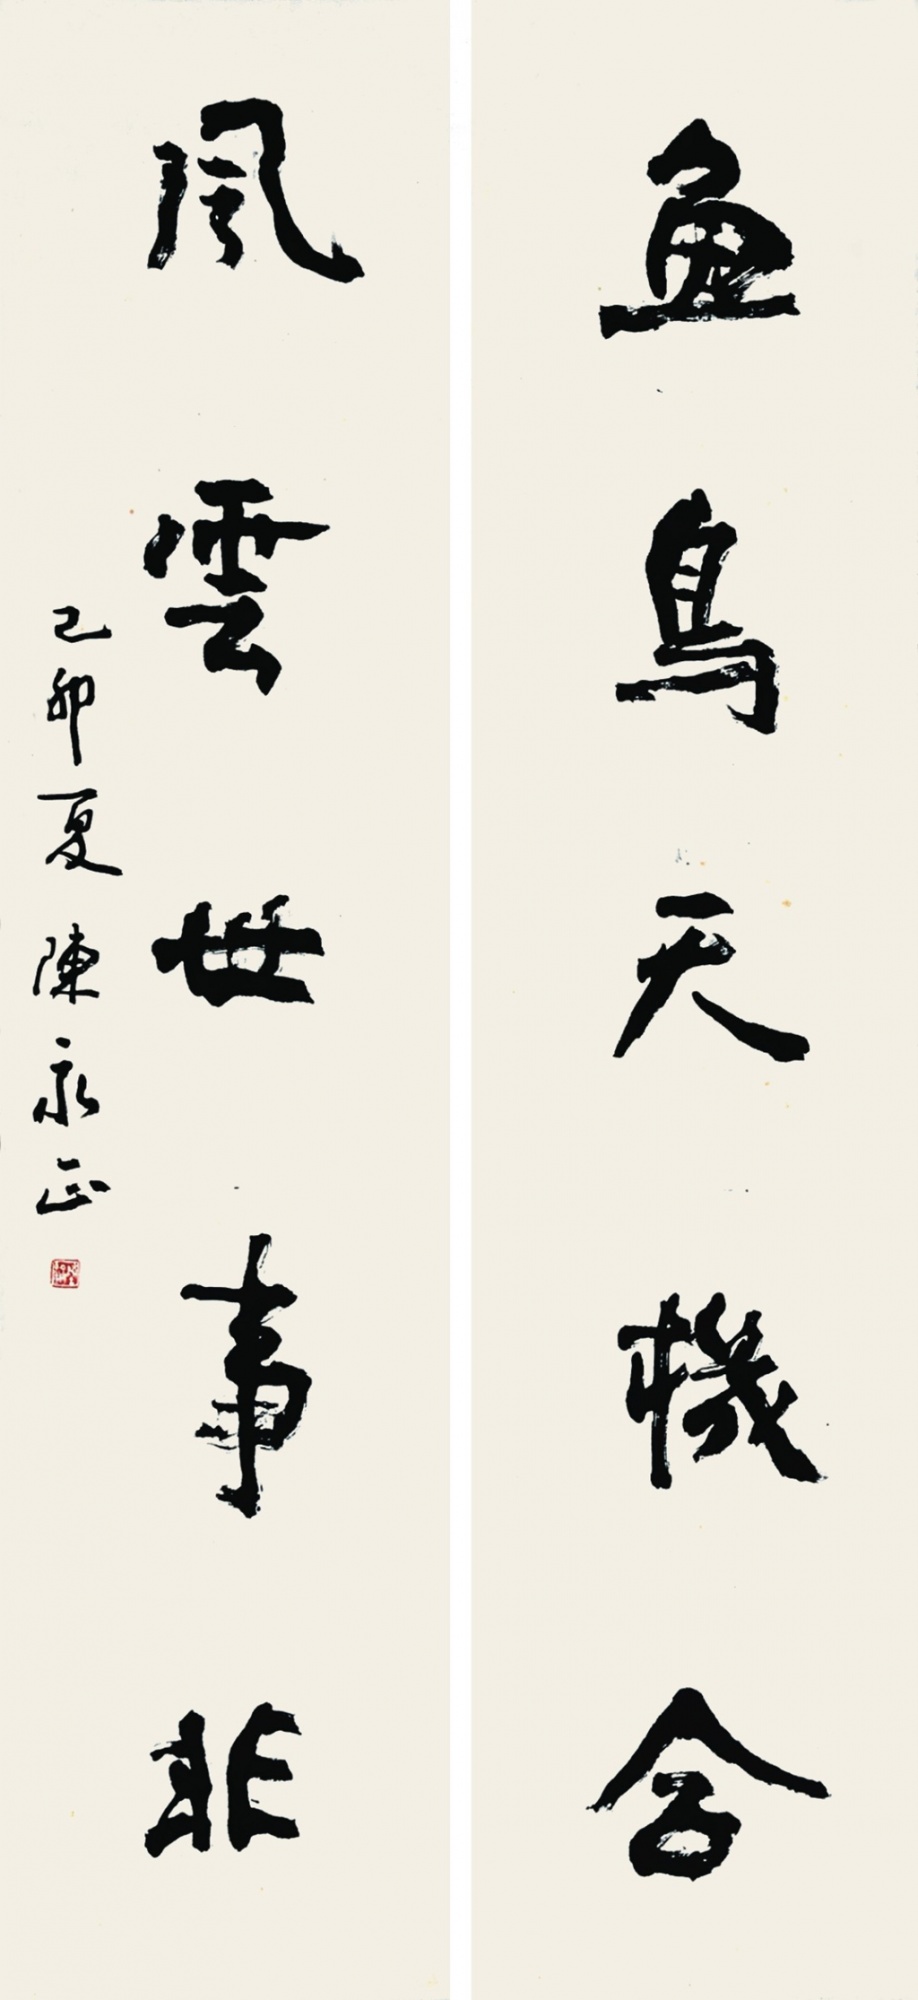 魚鳥天機合
風雲世事非
己卯夏陳永正